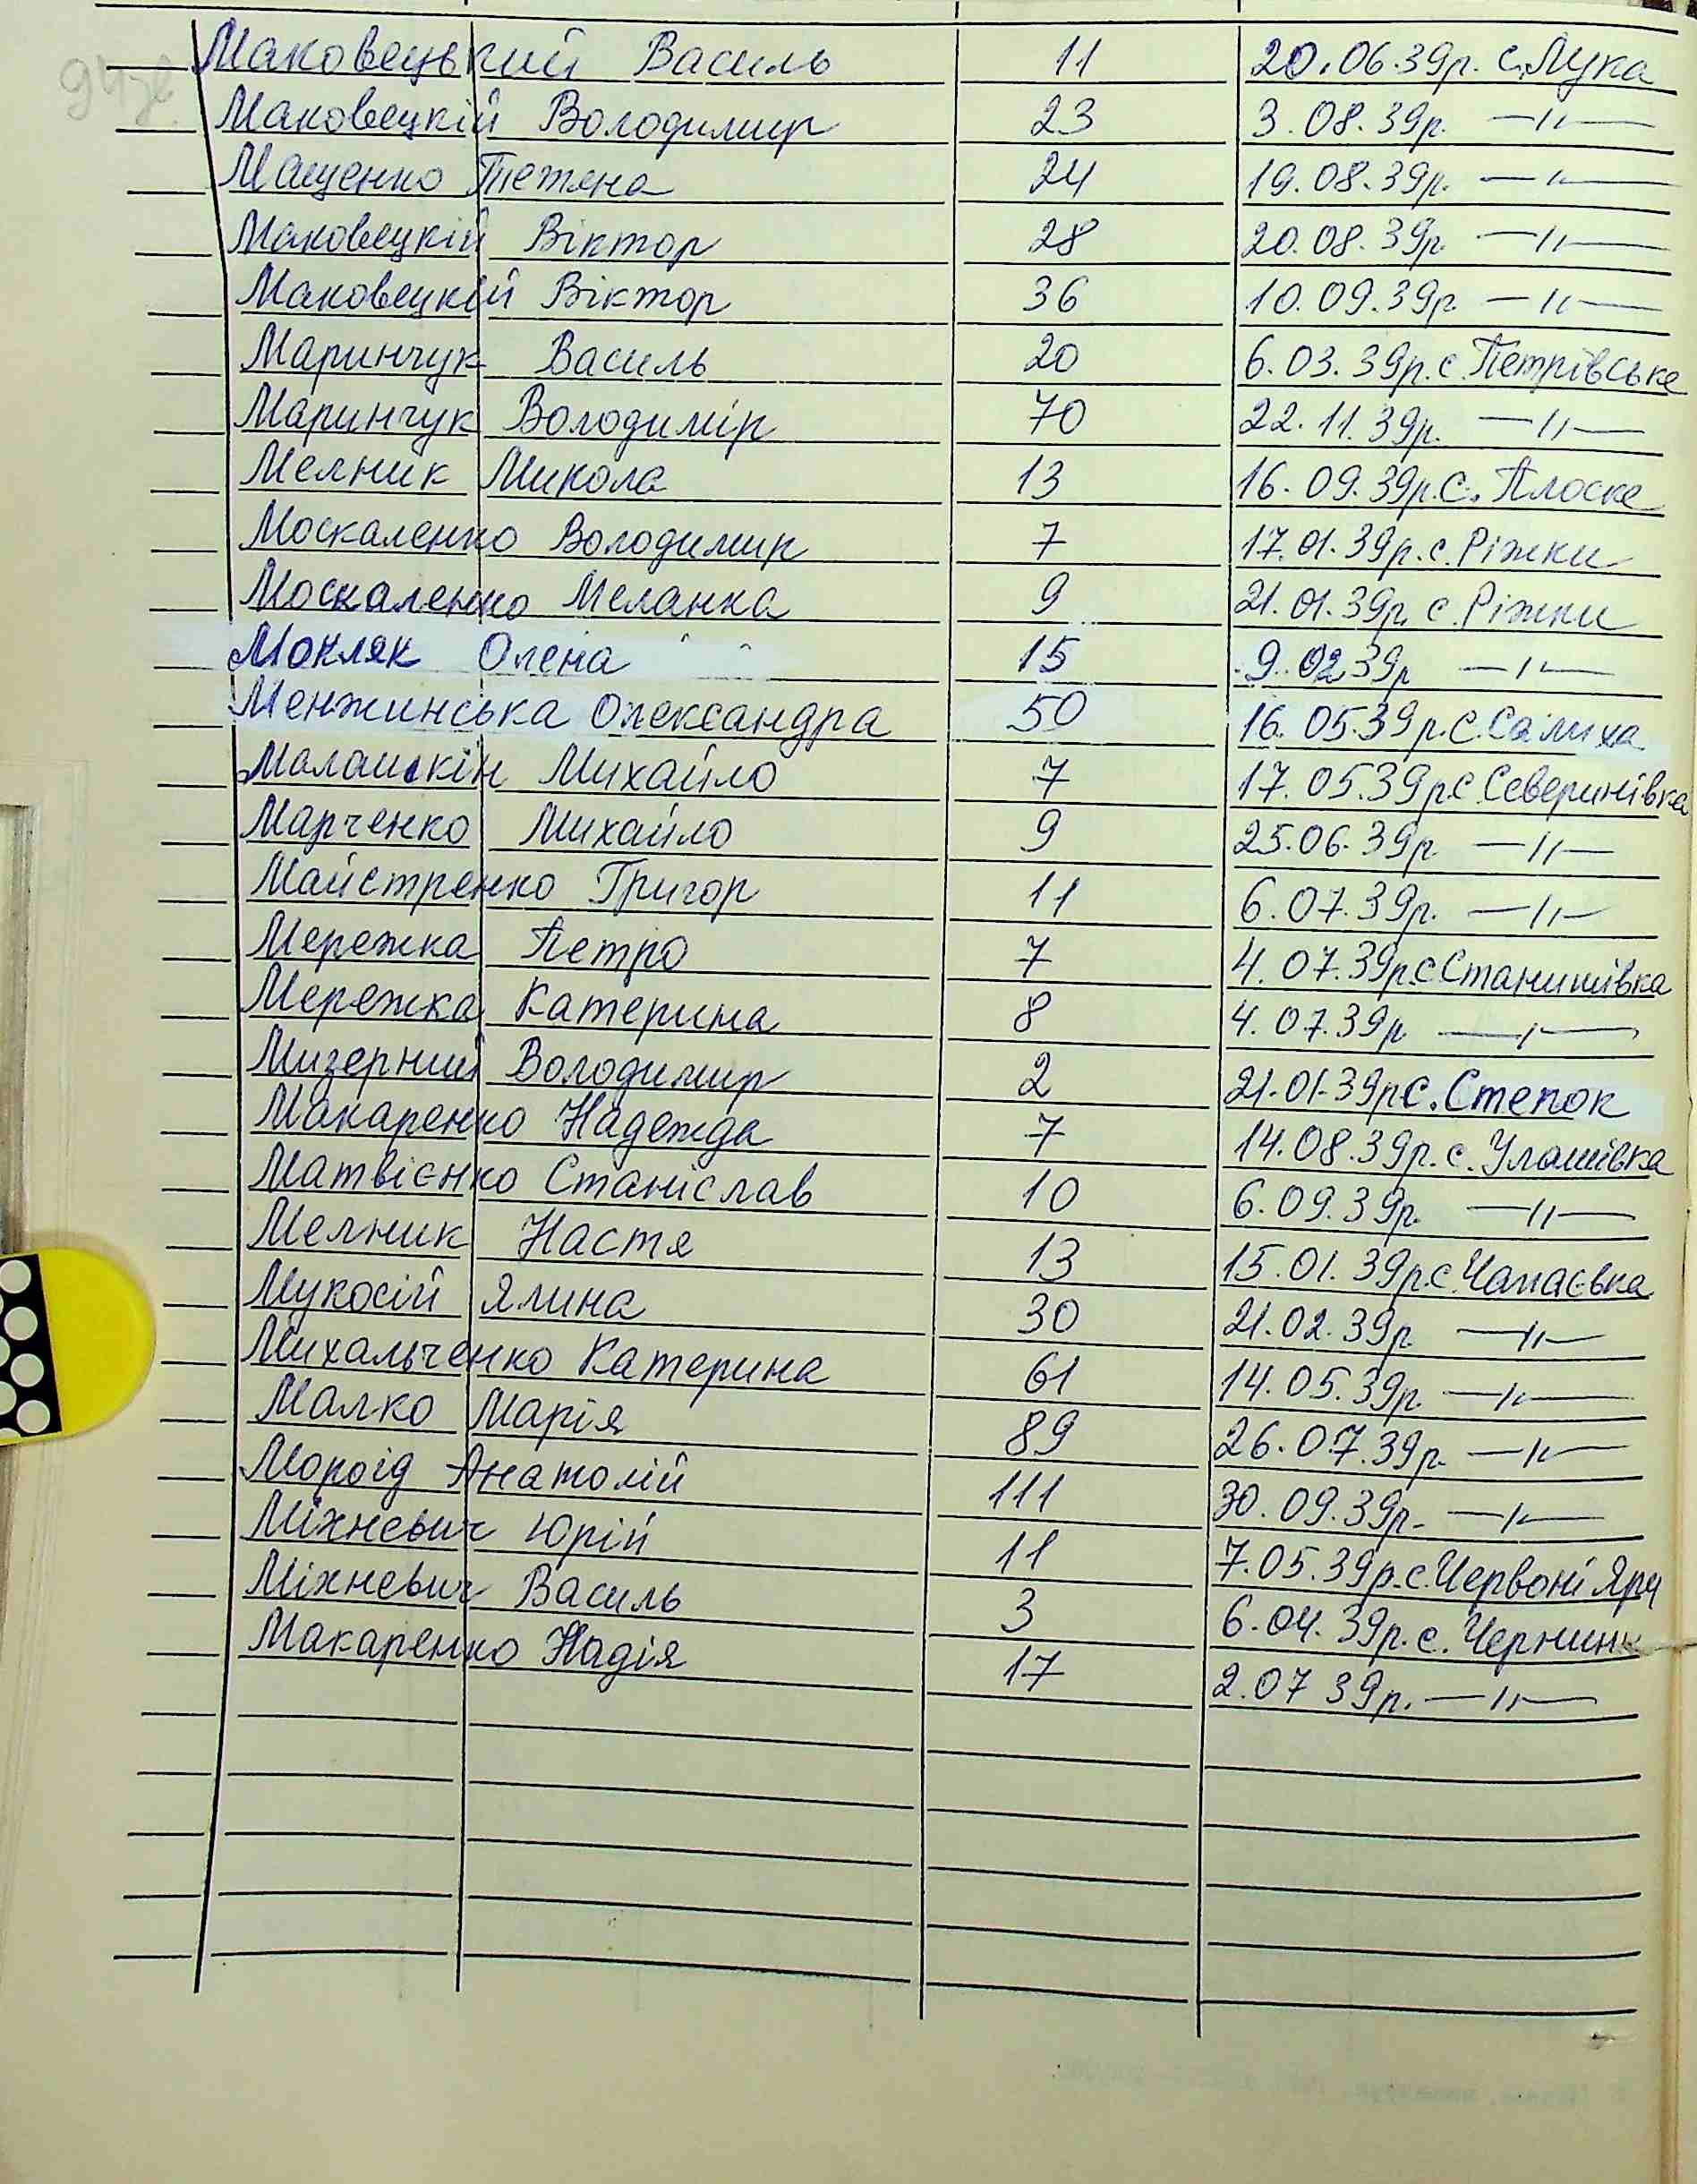 Маковецький Василь 11 20.06.39р. с.Лука
Маковецкій Володимир 23 3.08.39р. —〃—
Мащенко Тетяна 24 19.08.39р. —〃—
Маковецкій Віктор 28 20.08.39р. —〃—
Маковецкій Віктор 36 10.09.39р. —〃—
Маринчук Василь 20 6.03.39р.с.Петрівське
Маринчук Володимір 70 22.11.39р. —〃—
Мелник Микола 13 16.09.39р.с. Плоске
Москаленко Володимир 7 17.01.39р.с.Ріжки
Москаленко Меланка 9 21.01.39р. с.Ріжки
Мокляк Олена 15 9.02.39р —〃—
Менжинська Олександра 50 16.05.39р.с.Салиха
Малашкін Михайло 7 17.05.39р.с.Северинівка
Марченко Михайло 9 25.06.39р —〃—
Майстренко Григор 11 6.07.39р. —〃—
Мережка Петро 7 4.07.39р.с.Станишівка
Мережка Катерина 8 4.07.39р —〃—
Мизерний Володимир 2 21.01.39рс.Степок
Макаренко Надежда 7 14.08.39р.с.Улашівка
Матвієнко Станіслав 10 6.09.39р. —〃—
Мелник Настя 13 15.01.39р.с.Чапаєвка
Мукосій Ялина 30 21.02.39р —〃—
Михальченко Катерина 61 14.05.39р. —〃—
Малко Марія 89 26.07.39р. —〃—
Мороід Анатолій 111 30.09.39р. —〃—
Міхневич Юрій 11 7.05.39р.с.Червоні Яри
Міхневич Василь 3 6.04.39р.с.Чернин
Макаренко Надія 17 2.07 39р. —〃—